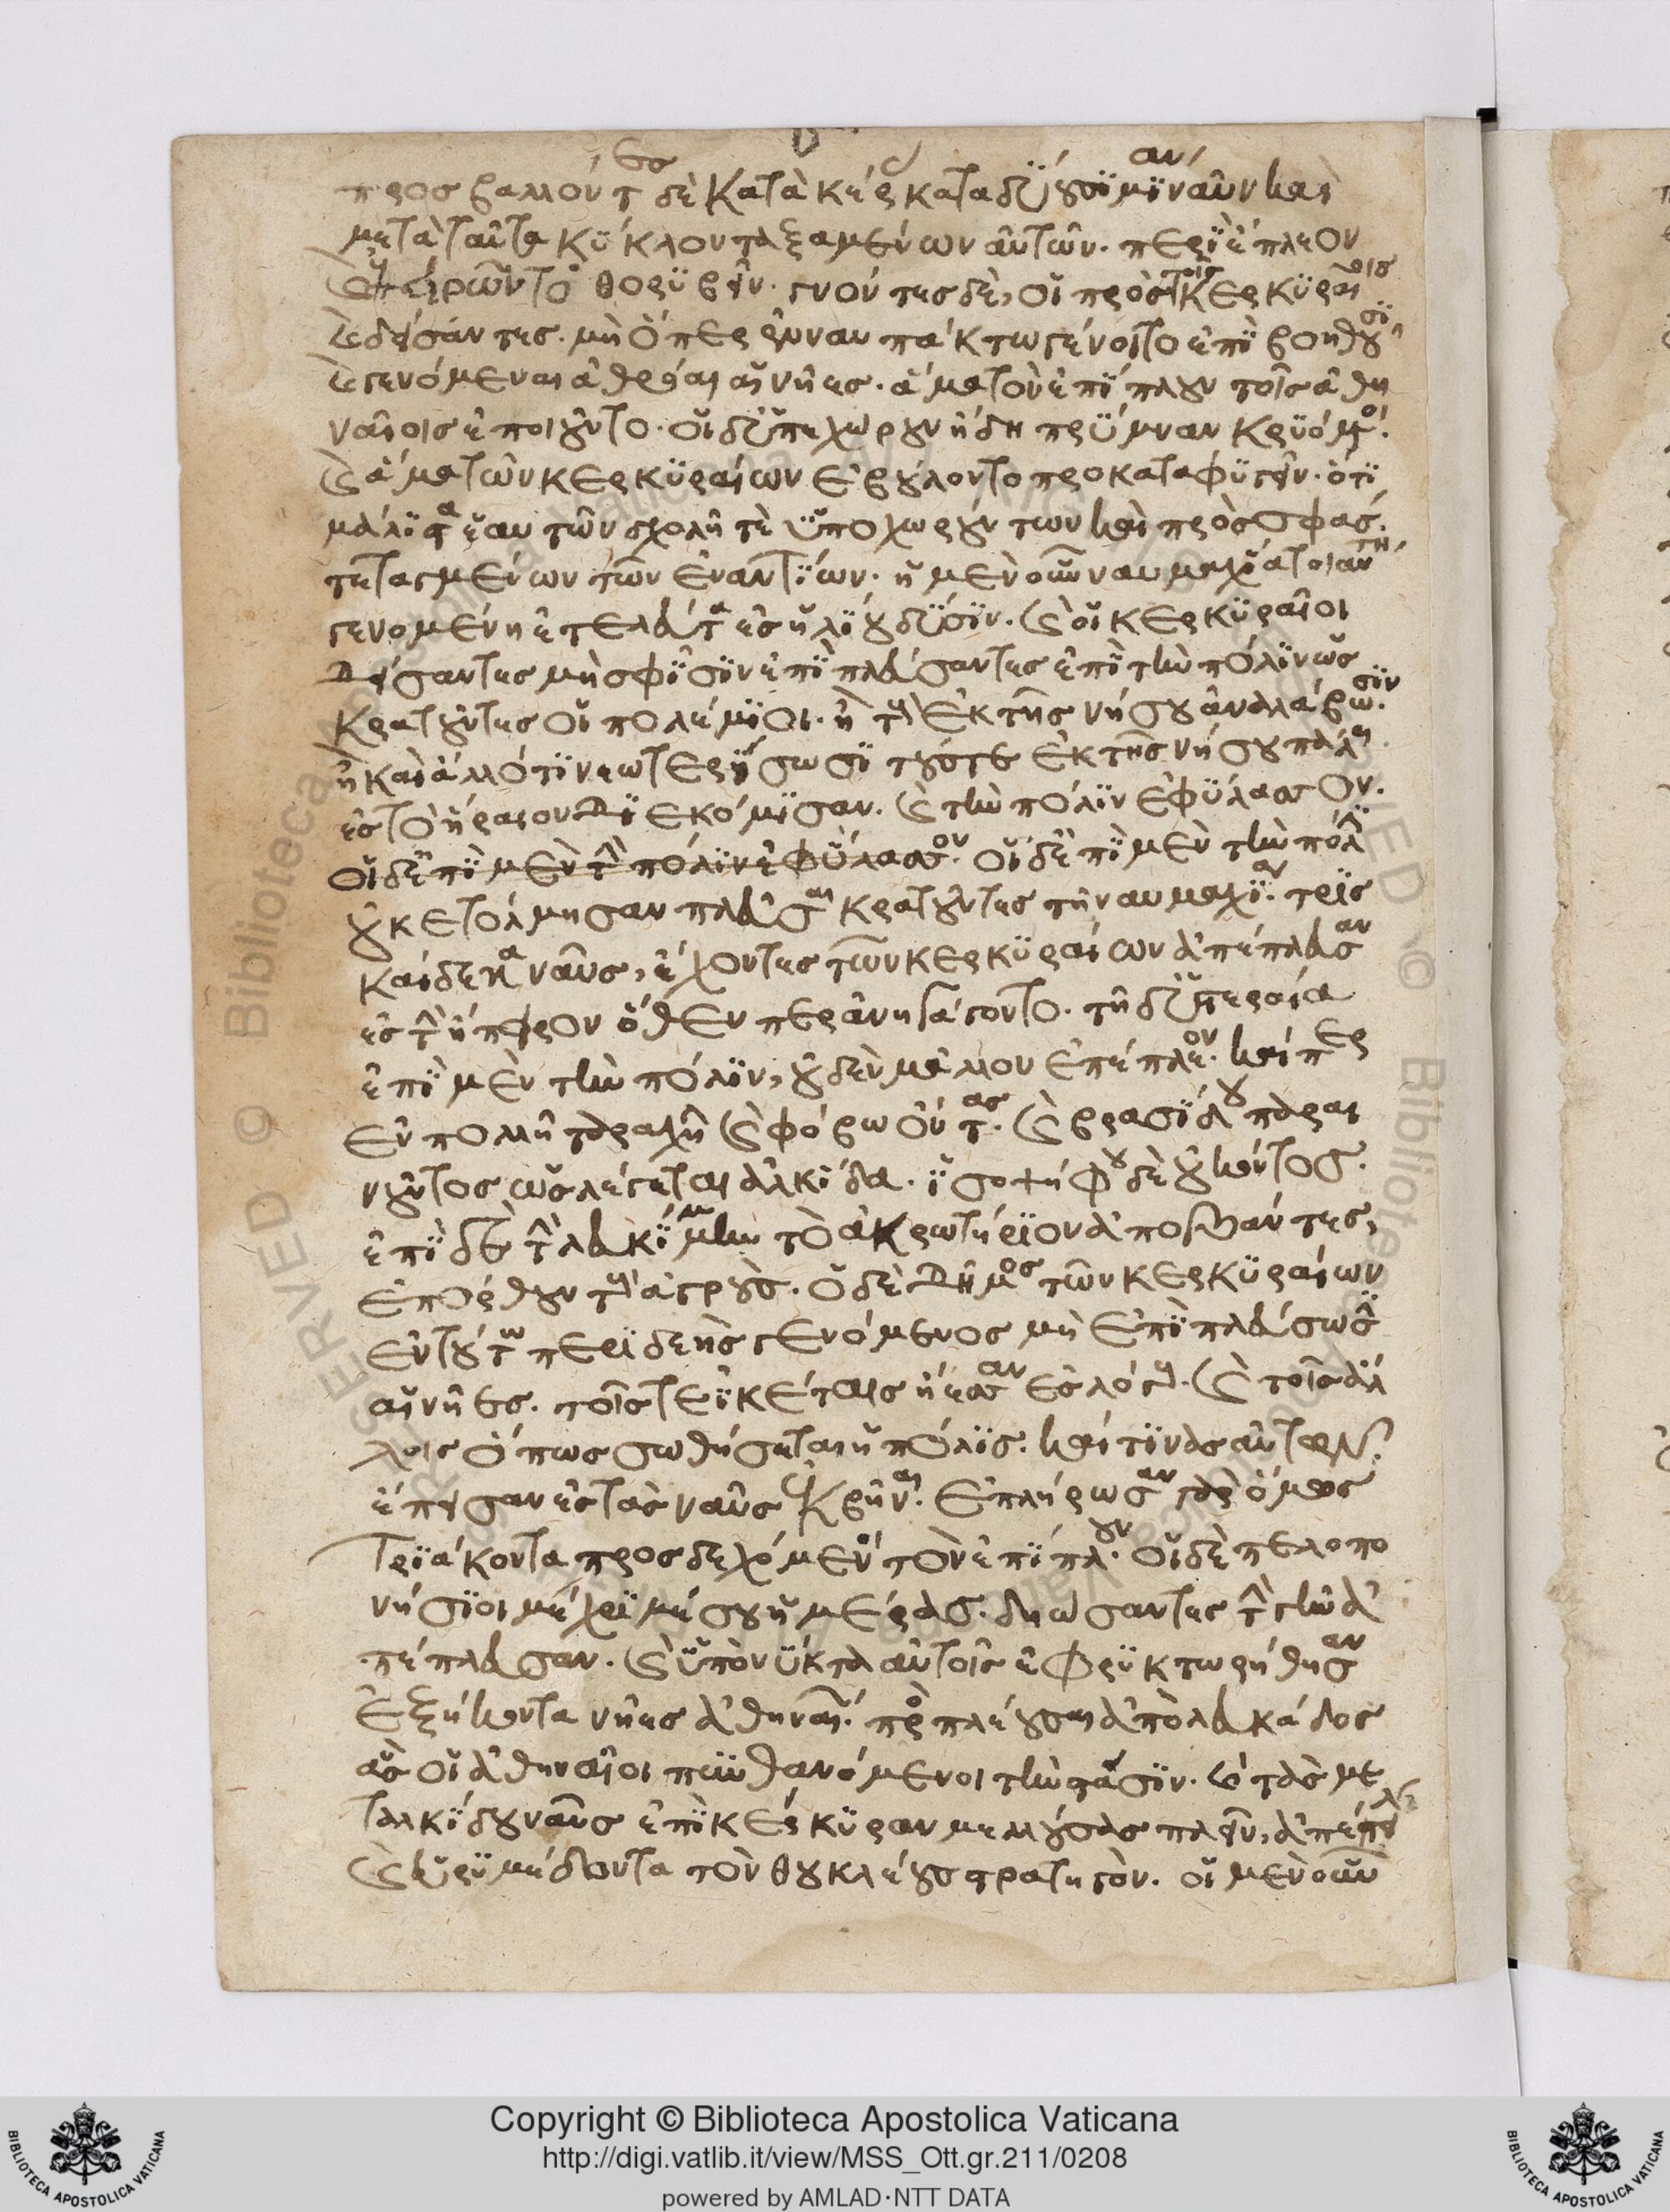 προσβαλλόντες δὲ κατὰ κέρας καταδύουσι μίαν ναῦν καὶ
μετὰ ταῦτα κύκλον ταξαμένων αὐτῶν. περιέπλεον
καὶ ἐπειρῶντο θορυβεῖν. γνόντες δὲ, οἱ πρὸς τοῖς κερκυραίοις
καὶ δείσαντες. μὴ ὅπερ ἐν ναυπάκτω γένοιτο ἐπιβοηθοῦσι
καὶ γενόμεναι ἀθρόαι αἱ νῆες. ἅμα τὸν ἐπίπλουν τοῖς ἀθη
ναίοις ἐποιοῦντο. οἱ δ' ὑπεχώρουν ἤδη πρύμναν κρυόμενοι.
καὶ ἅμα τῶν κερκυραίων ἐβούλοντο προκαταφυγεῖν. ὅτι
μάλιστα ἑαυτῶν σχολῆ τὲ ὑποχωρούντων καὶ πρὸς σφᾶς.
τεταγμένων τῶν ἐναντίων. ἡ μὲν οὖν ναυμαχία τοιαύτη
γενομένη ἐτελεύτα ἐς ἡλίου δύσιν. καὶ οἱ κερκυραῖοι
δείσαντες μὴ σφίσιν ἐπιπλεύσαντες ἐπὶ τὴν πόλιν ὡς
κρατοῦντες οἱ πολέμιοι. ἢ τοὺς ἐκ τῆς νήσου ἀναλάβωσιν.
ἢ καὶ ἄλλό τι νεωτερίσωσι τούς τε ἐκ τῆς νήσου πάλιν
ἐς τὸ ἥραιον διεκόμισαν. καὶ τὴν πόλιν ἐφύλασσον.
οἱ δ' ἐπὶ μὲν τὴν πόλιν ἐφύλασσον. οἱ δ' ἐπὶ μὲν τὴν πόλιν
οὐκ ἐτόλμησαν πλεῦσαι κρατοῦντες τὴν ναυμαχίαν. τρεῖς
καίδεκα ναῦς, ἔχοντες τῶν κερκυραίων ἀπέπλευσαν
ἐς τὴν ἤπειρον ὅθεν περ ἀνηγάγοντο. τῆ δ' ὑστεραία
ἐπὶ μὲν τὴν πόλιν, οὐδὲν μᾶλλον ἐπέπλεον. καίπερ
ἐν πολλῆ ταραχῆ καὶ φόβω ὄντας. καὶ βρασίδου παραι
νοῦντος ὡς λέγεται ἀλκίδα. ἰσοψήφου δὲ οὐκ ὄντος.
ἐπὶ δὲ τὴν λευκίμμην τὸ ἀκρωτήριον ἀποβάντες,
ἐπόρθουν τοὺς ἀγρούς. ὁ δὲ δῆμος τῶν κερκυραίων
ἐν τούτω περιδεὴς γενόμενος μὴ ἐπιπλεύσωσιν
αἱ νῆες. τοῖς τε ἱκέταις ἤεσαν ἐς λόγους. καὶ τοῖς ἄλ
λοις ὅπως σωθήσεται ἡ πόλις. καί τινας αὐτῶν
ἔπεισαν ἐς τὰς ναῦς ἐκβῆναι. ἐπλήρωσαν γὰρ ὅμως
τριάκοντα προσδεχόμενοι τὸν ἐπίπλουν. οἱ δὲ πελοπο
νήσιοι μέχρι μέσου ἡμέρας. δηώσαντες τὴν γῆν ἀ
πέπλευσαν. καὶ ὑπὸ νύκτα αὐτοῖς ἐφρυκτωρήθησαν
ἑξήκοντα νῆες ἀθηναίων. προσπλέουσαι ἀπὸ λευκάδος
ἃς οἱ ἀθηναῖοι πυνθανόμενοι τὴν στάσιν. καὶ τὰς με
τ' ἀλκίδου ναῦς ἐπὶ κέρκυραν μελλούσας πλεῖν, ἀπέστειλαν
καὶ εὐρυμέδοντα τὸν θουκλέους στρατηγόν. οἱ μὲν οὖν
Copyright © Biblioteca Apostolica Vaticana
http://digi.vatlib.it/view/MSS_Ott.gr.211/0208
powered by AMLAD·NTT DATA